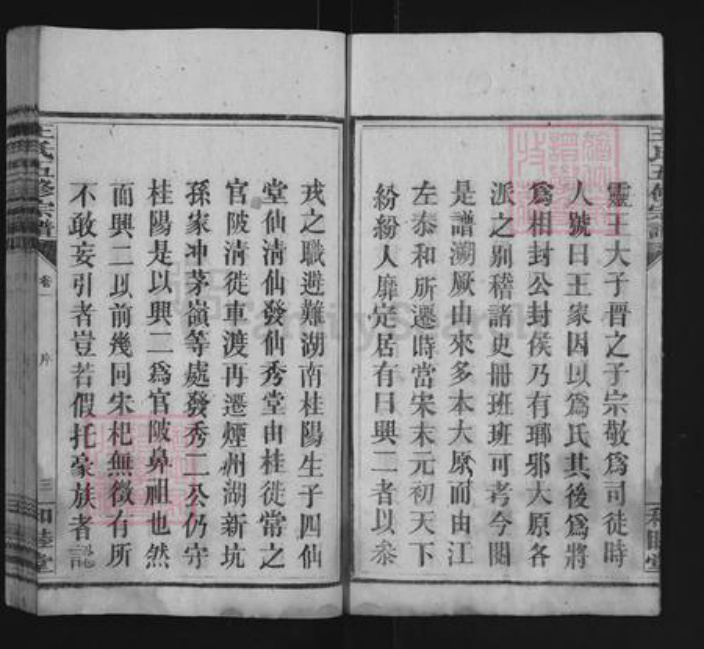 靈王大子晋之子宗敬為司徒時
人號曰王家因以為氏其後為將
為相封公封侯乃有瑯邪大原各
派之别稽諸史冊班班可考今閱
是譜溯厥由來多本大原而由江
左泰和所遷時當宋末元初天下
紛紛人靡定居有曰興二者以叅
戎之職避難湖南桂陽生子四仙
堂仙清仙發仙秀堂由桂徙常之
官陂清徙車渡再遷煙州湖新坑
孫家冲茅嶺等處發秀二公仍守
桂陽是以興二為官陂鼻祖也然
而興二以前幾同宋杞無徵有所
不敢妄引者豈若假托豪族者
王氏五修宗譜
卷一
三
和睦堂
王氏五修宗譜
和睦堂
FamilySearch